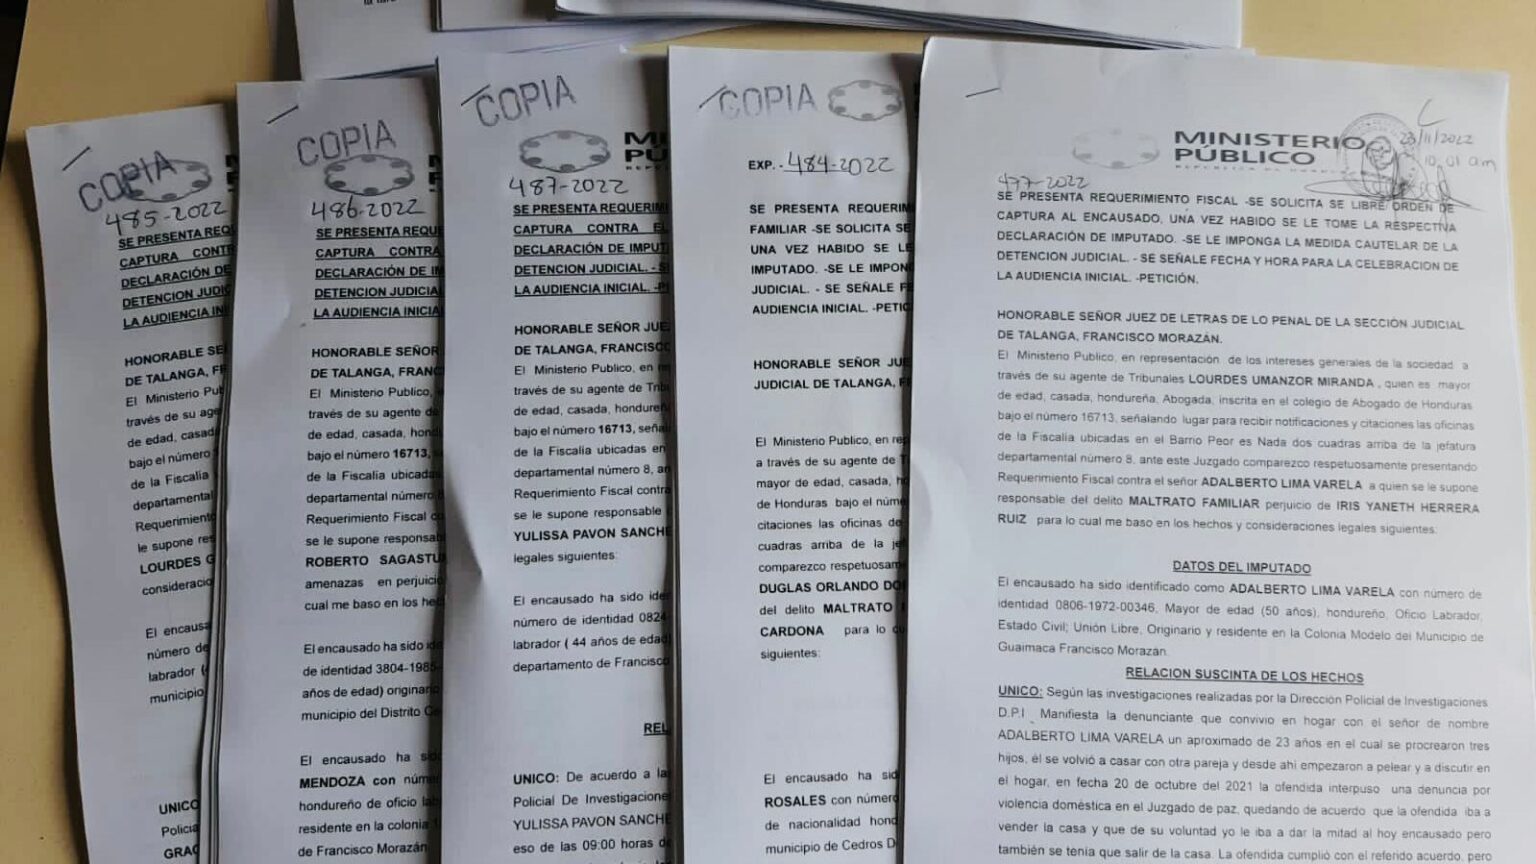 COPIA
485-2022
SE PRESENTA REQU
CAPTURA CONTR
DECLARACIÓN DE
DETENCION JUDIC
LA AUDIENCIA INI
HONORABLE SE
DE TALANGA, F
El Ministerio Pub
través de su age
de edad, casada
bajo el número
de la Fiscalía
departamental
Requerimiento
le supone res
LOURDES G
consideracio
El encausa
número de
labrador (
municipio
UNICO
Policia
GRAC
COPIA
486-2022
SE PRESENTA REQU
CAPTURA CONTRA
DECLARACIÓN DE IM
DETENCION JUDICIAL
LA AUDIENCIA INICIA
HONORABLE SEÑOR
DE TALANGA, FRANC
El Ministerio Publico,
través de su agente de
de edad, casada, hond
bajo el número 16713,
de la Fiscalía ubicadas
departamental número 8
Requerimiento Fiscal co
se le supone responsab
ROBERTO SAGASTU
amenazas en perjuicio
cual me baso en los hec
El encausado ha sido ide
de identidad 3804-1985-
años de edad) originario
municipio del Distrito Ce
El encausado ha sid
MENDOZA con núme
hondureño de oficio la
residente en la colonia
de Francisco Morazán
COPIA
MI
PÚ
487-2022
SE PRESENTA REQUERIMI
CAPTURA CONTRA EL
DECLARACIÓN DE IMPUT
DETENCION JUDICIAL. - S
LA AUDIENCIA INICIAL. -P
HONORABLE SEÑOR JUE
DE TALANGA, FRANCISCO
El Ministerio Publico, en re
través de su agente de Trib
de edad, casada, hondureñ
bajo el número 16713, seña
de la Fiscalía ubicadas en
departamental número 8, an
Requerimiento Fiscal contra
se le supone responsable
YULISSA PAVON SANCHE
legales siguientes:
El encausado ha sido ide
número de identidad 0824
labrador ( 44 años de edad)
departamento de Francisco
REL
UNICO: De acuerdo a la
Policial De Investigaciones
YULISSA PAVON SANCHE
eso de las 09:00 horas de
COPIA
EXP.- 484-2022
SE PRESENTA REQUERIM
FAMILIAR -SE SOLICITA SE
UNA VEZ HABIDO SE LE
IMPUTADO. -SE LE IMPON
JUDICIAL. - SE SEÑALE FE
AUDIENCIA INICIAL. -PETIC
HONORABLE SEÑOR JUE
JUDICIAL DE TALANGA, F
El Ministerio Publico, en rep
a través de su agente de T
mayor de edad, casada, ho
de Honduras bajo el núme
citaciones las oficinas de
cuadras arriba de la jef
comparezco respetuosam
DUGLAS ORLANDO DO
del delito MALTRATO
CARDONA para lo cu
siguientes:
El encausado ha sid
ROSALES con número
de nacionalidad hond
municipio de Cedros D
MINISTERIO
PÚBLICO
23/11/2022
10:01 am
477-2022
SE PRESENTA REQUERIMIENTO FISCAL -SE SOLICITA SE LIBRE ORDEN DE
CAPTURA AL ENCAUSADO, UNA VEZ HABIDO SE LE TOME LA RESPECTIVA
DECLARACIÓN DE IMPUTADO. -SE LE IMPONGA LA MEDIDA CAUTELAR DE LA
DETENCION JUDICIAL. - SE SEÑALE FECHA Y HORA PARA LA CELEBRACION DE
LA AUDIENCIA INICIAL. -PETICIÓN.
HONORABLE SEÑOR JUEZ DE LETRAS DE LO PENAL DE LA SECCIÓN JUDICIAL
DE TALANGA, FRANCISCO MORAZÁN.
El Ministerio Publico, en representación de los intereses generales de la sociedad a
través de su agente de Tribunales LOURDES UMANZOR MIRANDA , quien es mayor
de edad, casada, hondureña, Abogada, inscrita en el colegio de Abogado de Honduras
bajo el número 16713, señalando lugar para recibir notificaciones y citaciones las oficinas
de la Fiscalía ubicadas en el Barrio Peor es Nada dos cuadras arriba de la jefatura
departamental número 8, ante este Juzgado comparezco respetuosamente presentando
Requerimiento Fiscal contra el señor ADALBERTO LIMA VARELA a quien se le supone
responsable del delito MALTRATO FAMILIAR perjuicio de IRIS YANETH HERRERA
RUIZ para lo cual me baso en los hechos y consideraciones legales siguientes:
DATOS DEL IMPUTADO
El encausado ha sido identificado como ADALBERTO LIMA VARELA con número de
identidad 0806-1972-00346, Mayor de edad (50 años), hondureño, Oficio Labrador,
Estado Civil; Unión Libre, Originario y residente en la Colonia Modelo del Municipio de
Guaimaca Francisco Morazán.
RELACION SUSCINTA DE LOS HECHOS
UNICO: Según las investigaciones realizadas por la Dirección Policial de Investigaciones
D.P.I , Manifiesta la denunciante que convivio en hogar con el señor de nombre
ADALBERTO LIMA VARELA un aproximado de 23 años en el cual se procrearon tres
hijos, él se volvió a casar con otra pareja y desde ahi empezaron a pelear y a discutir en
el hogar, en fecha 20 de octubre del 2021 la ofendida interpuso una denuncia por
violencia doméstica en el Juzgado de paz, quedando de acuerdo que la ofendida iba a
vender la casa y que de su voluntad yo le iba a dar la mitad al hoy encausado pero
también se tenia que salir de la casa. La ofendida cumplió con el referido acuerdo, pero